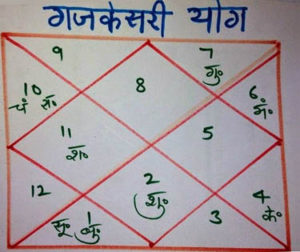 गजकेसरी योग
9
7
गु॰
8
10
चं॰ रा॰
6
मं॰
11
श॰
5
12
2
शु॰
4
के॰
सू॰ 1 बु॰
3